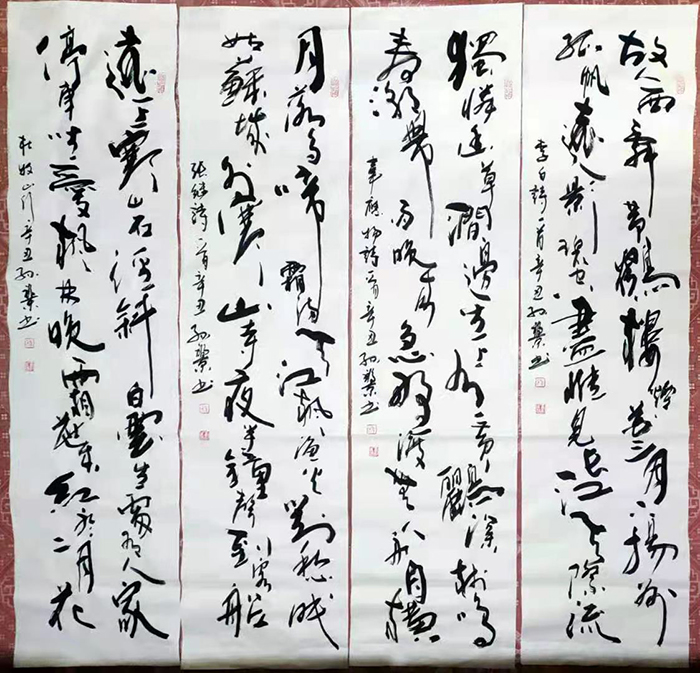 故人西辭黄鶴樓煙花三月下揚州
孤帆遠影碧空盡惟見長江天際流
李白詩一首辛丑孙
獨憐幽草澗邊生上有黄鸝深樹鳴
春潮帶雨晚來急野渡無人舟自横
韋應物詩一首辛丑孙
月落烏啼霜滿天江楓漁火對愁眠
姑蘇城外寒山寺夜半鐘聲到客船
張繼詩一首辛丑孙
遠上寒山石徑斜白雲生處有人家
停車坐愛楓林晚霜葉紅於二月花
杜牧山行辛丑孙